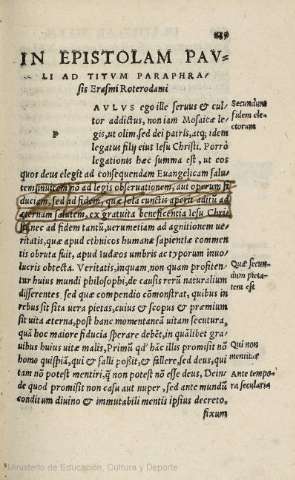 IN EPISTOLAM PAV-
LI AD TITVM PARAPHRA-
sis Erasmi Roterodami
AVLVS ego ille seruus & cul
tor addictus, non iam Mosaicæ le
P
gis, ut olim, sed dei patris, atq; idem
legatus filij eius Iesu Christi. Porrò
legationis hæc summa est, ut eos
quos deus elegit ad consequendam Euangelicam salu
tem inuitem nõ ad legis obseruationem, aut operum fi
duciam, sed ad fidem, quæ sola cunctis aperit aditũ ad
æternam salutem, ex gratuita beneficentia Iesu Christi
nec ad fidem tantũ, uerumetiam ad agnitionem ue-
ritatis, quæ apud ethnicos humanæ sapientiæ commen
tis obruta fuit, apud Iudæos umbris ac typorum inuo
lucris obtecta. Veritatis, inquam, non quam profiten-
tur huius mundi philosophi, de causis rerũ naturalium
differentes sed quæ compendio cõmonstrat, quibus in
rebus sit sita uera pietas, cuius & scopus & præmium
sit uita æterna, post hanc momentaneã uitam secutura,
quã hoc maiore fiducia sperare debẽt, in quälibet gra
uibus huius uitæ malis, Primũ qd' hãc illis promisit nõ
homo quispiã, qui & falli poßit, & fallere, sed deus, qui
tam nõ potest mentiri, q̃ non potest nõ esse deus, Dein
de quod promisit non casu aut nuper, sed ante mundũ
conditum diuino & immutabili mentis ipsius decreto,
fixum
Secundum
fidem elec
torum
Quæ secun
dum pieta-
tem est
Qui non
mentitur
Ante tempo
ra secularia
Ministerio de Educación, Cultura y Deporte